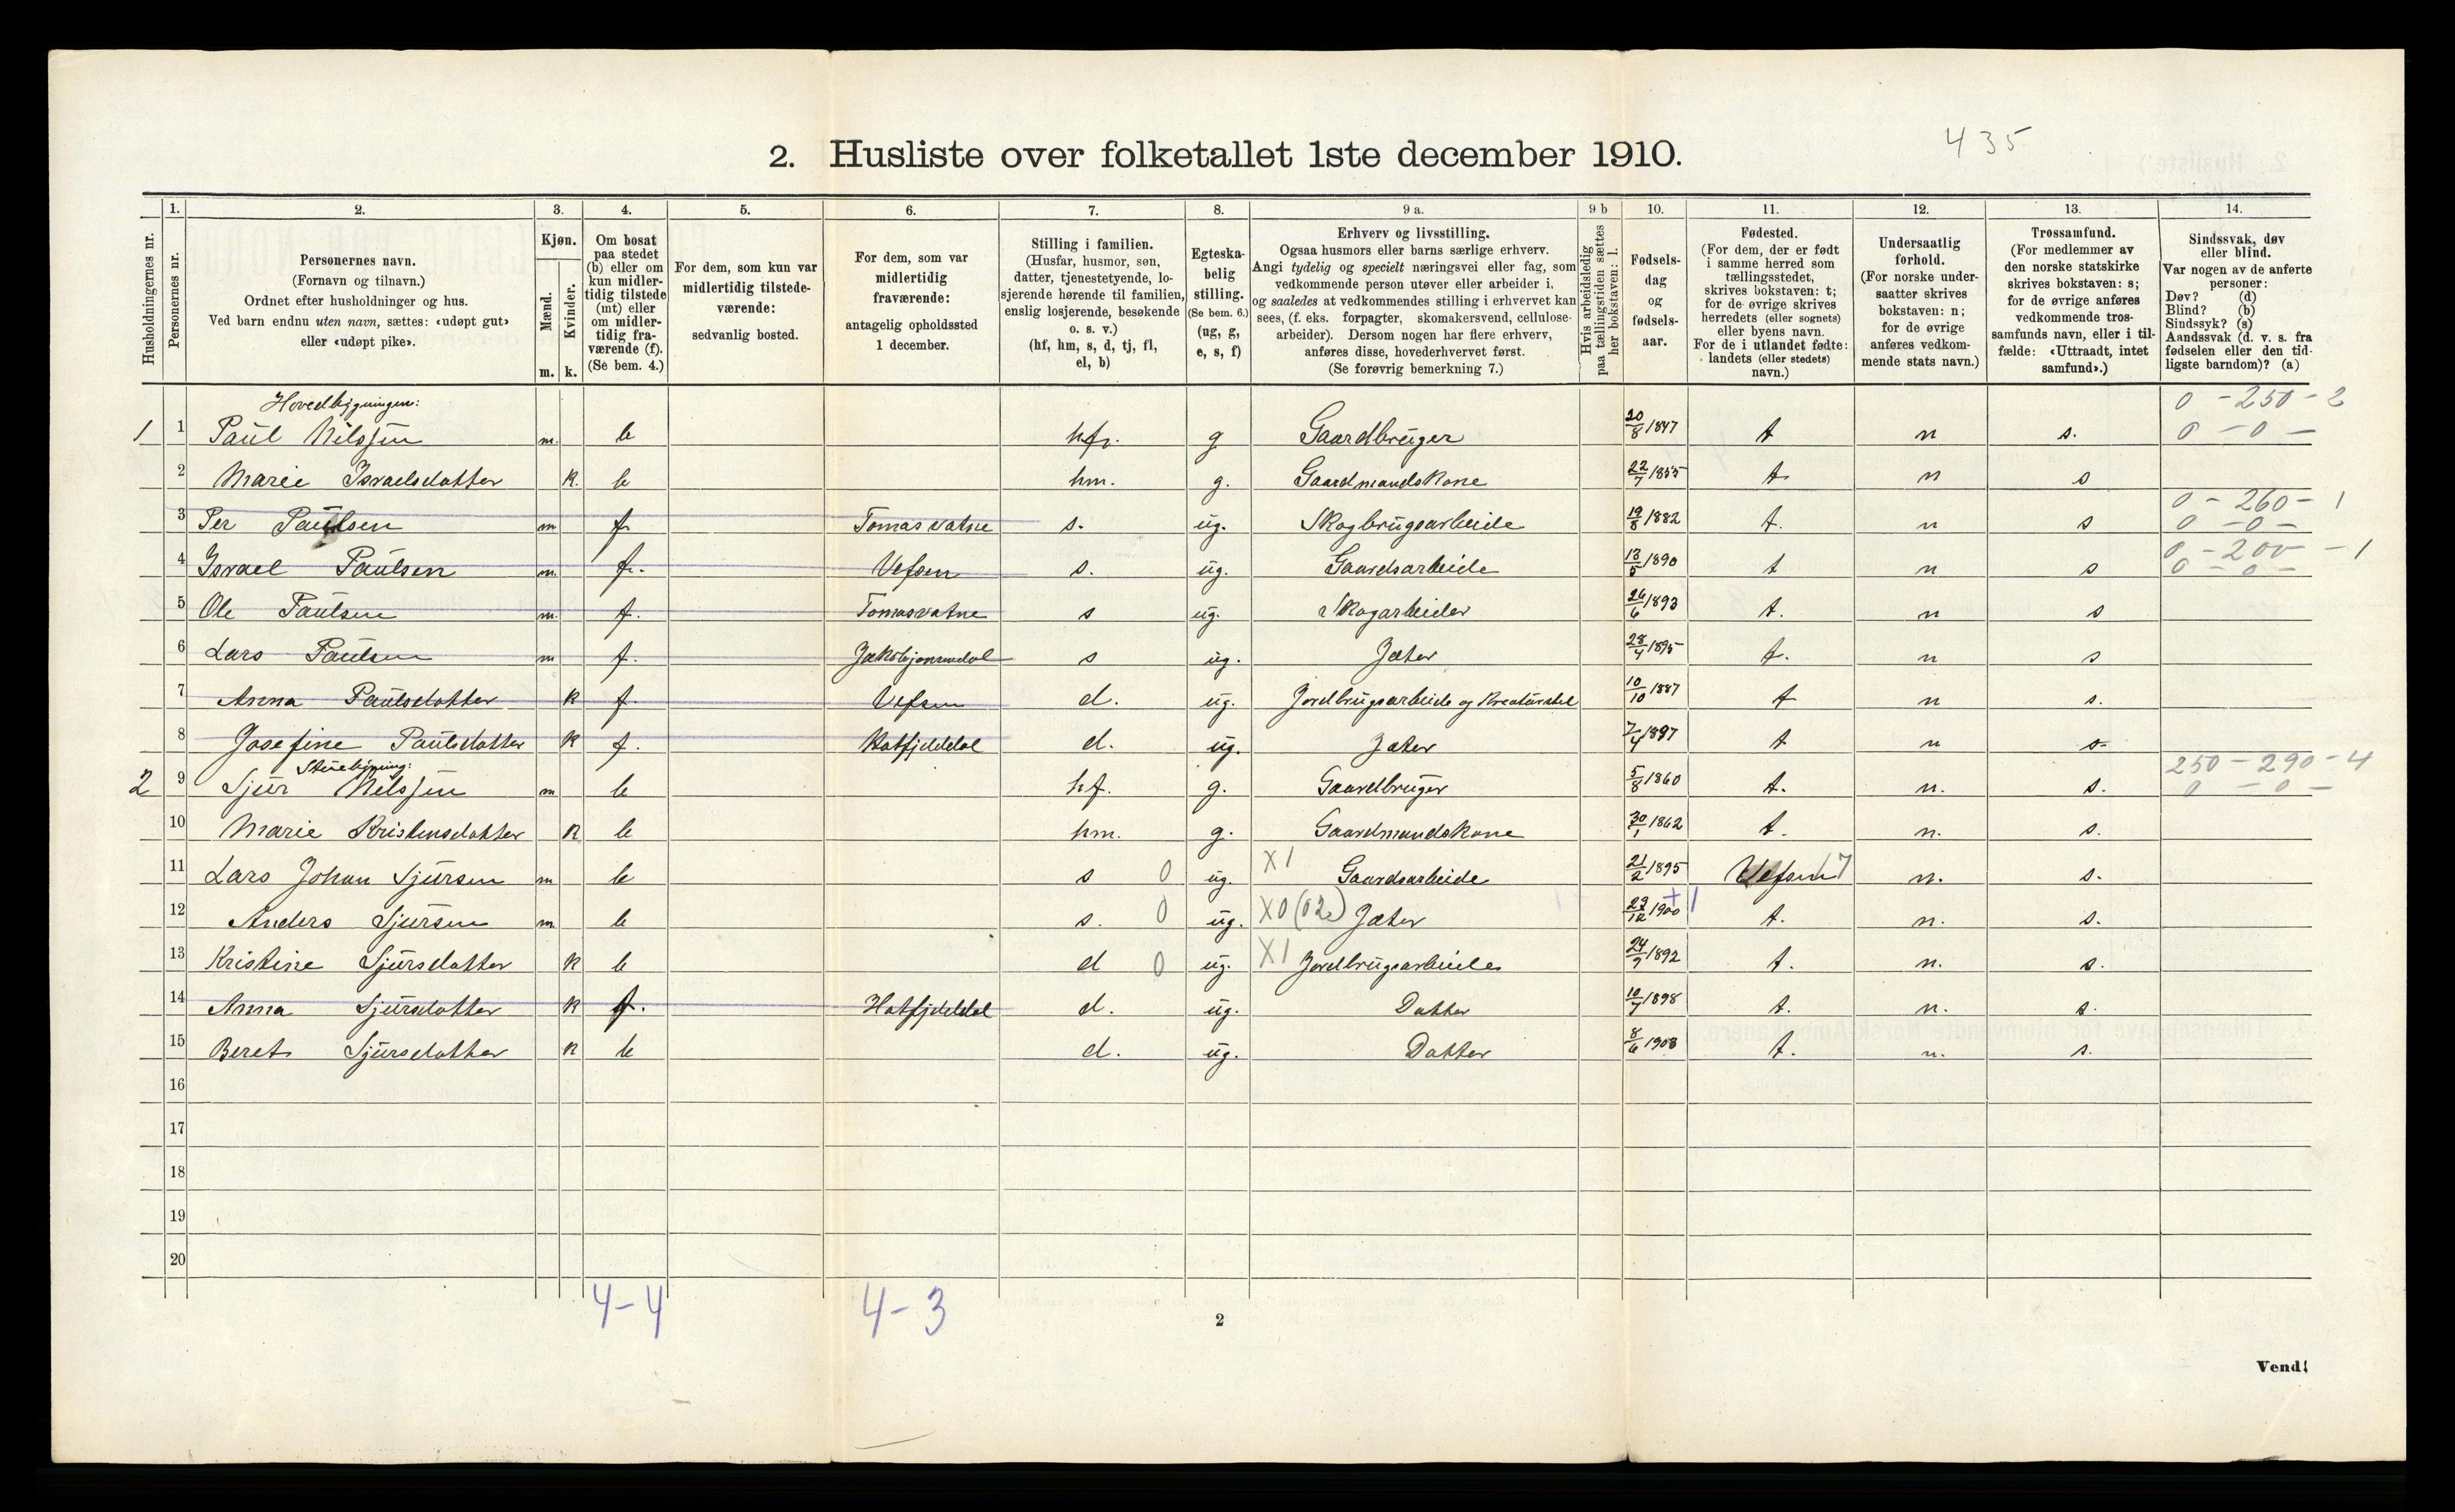 435
2. Husliste over folketallet 1ste december 1910.
Husholdningernes nr.
1. Personernes nr.
2. Personernes navn. (Fornavn og tilnavn.) Ordnet efter husholdninger og hus. Ved barn endnu uten navn, sættes: «udøpt gut» eller «udøpt pike».
3. Kjøn. Mænd. m. Kvinder. k.
4. Om bosat paa stedet (b) eller om kun midlertidig tilstede (mt) eller om midlertidig fraværende (f). (Se bem. 4.)
5. For dem, som kun var midlertidig tilstedeværende: sedvanlig bosted.
6. For dem, som var midlertidig fraværende: antagelig opholdssted 1 december.
7. Stilling i familien. (Husfar, husmor, søn, datter, tjenestetyende, losjerende hørende til familien, enslig losjerende, besøkende o. s. v.) (hf, hm, s, d, tj, fl, el, b)
8. Egteskabelig stilling. (Se bem. 6.) (ug, g, e, s, f)
9 a. Erhverv og livsstilling. Ogsaa husmors eller barns særlige erhverv. Angi tydelig og specielt næringsvei eller fag, som vedkommende person utøver eller arbeider i, og saaledes at vedkommendes stilling i erhvervet kan sees, (f. eks. forpagter, skomakersvend, cellulosearbeider). Dersom nogen har flere erhverv, anføres disse, hovederhvervet først. (Se forøvrig bemerkning 7.)
9 b Hvis arbeidsledig paa tællingstiden sættes her bokstaven: l.
10. Fødselsdag og fødselsaar.
11. Fødested. (For dem, der er født i samme herred som tællingsstedet, skrives bokstaven: t; for de øvrige skrives herredets (eller sognets) eller byens navn. For de i utlandet fødte: landets (eller stedets) navn.)
12. Undersaatlig forhold. (For norske undersaatter skrives bokstaven: n; for de øvrige anføres vedkommende stats navn.)
13. Trossamfund. (For medlemmer av den norske statskirke skrives bokstaven: s; for de øvrige anføres vedkommende trossamfunds navn, eller i tilfælde: «Uttraadt, intet samfund».)
14. Sindssvak, døv eller blind. Var nogen av de anførte personer: Døv? (d) Blind? (b) Sindssyk? (s) Aandssvak (d. v. s. fra fødselen eller den tidligste barndom)? (a)
Hovedbygningen: 0 - 250 - 2
1 1 Paul Nilssen m. b hfr. g Gaardbruger 20/8 1847 t n s. 0 - 0 -
2 Marie Israelsdatter k. b hm. g. Gaardmandskone 22/7 1855 t n s
0 - 260 - 1
3 Per Paulsen m f. Tomasvatne s. ug. Skogbrugsarbeide 19/8 1882 t. n s 0 - 0 -
0 - 200 - 1
4 Israel Paulsen m. f. Vefsen s. ug. Gaardsarbeide 13/5 1890 t n s 0 - 0 -
5 Ole Paulsen m. f. Tomasvatne s ug. Skogarbeider 26/6 1893 t. n s
6 Lars Paulsen m f. s ug. Jæter 28/4 1895 t. n s
7 Anna Paulsdatter k f. Vefsen d. ug. Jordbrugsarbeide og Kreaturstel 10/10 1887 t n s.
8 Josefine Paulsdatter k f. Hatfjeldal d. ug. Jæter 7/4 1897 t n s
250 - 290 - 4
2 9 Sjur Nilssen m b hf. g. Gaardbruger 5/8 1860 t. n. s. 0 - 0 -
10 Marie Kristensdatter k b hm. g. Gaardmandskone 30/1 1862 t. n. s.
11 Lars Johan Sjursen m b s 0 ug. X1 Gaardsarbeide 21/2 1895 Vefsen n. s.
12 Anders Sjursen m b s. 0 ug. X0 (02) Jæter 1900 t. n. s.
13 Kristine Sjursdatter k b d 0 ug. X1 Jordbrugsarbeide 1892 t. n. s.
14 Anna Sjursdatter k f. Hatfjeldal d. ug. Datter 10/7 1898 t. n. s.
15 Beret Sjursdatter k b d. ug. Datter 8/6 1908 t. n. s.
16
17
18
19
20
4-4 4-3
2
Vend!